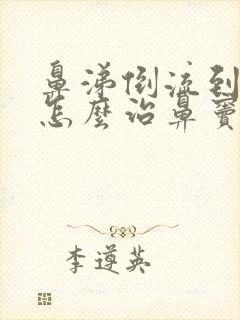 鼻涕倒流到
怎麼治鼻竇
李遵英